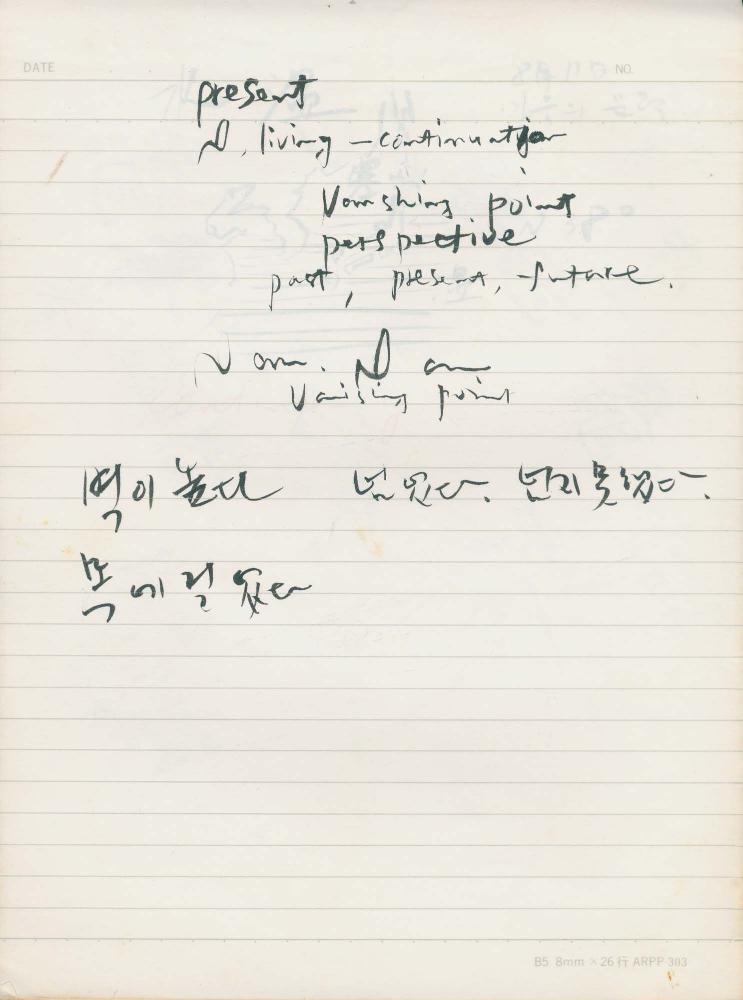 DATE
NO.
present
N, living - continuation
Vanishing point
perspective
past, present, future.
N am. N am
Vanising point
벽이 높다 넘었다. 넘지 못했다.
목에 걸렸다
B5 8mm × 26行 ARPP 303